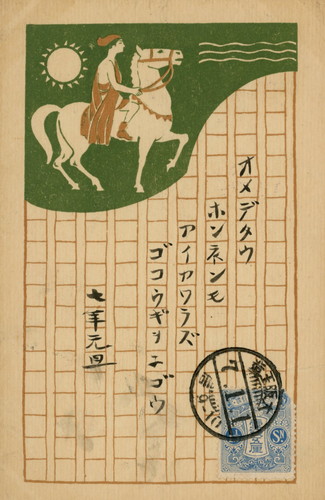 オメデタウ
ホンネンモ
アイアワラズ
ゴコウギヲネゴウ
七年元旦
7.1.1